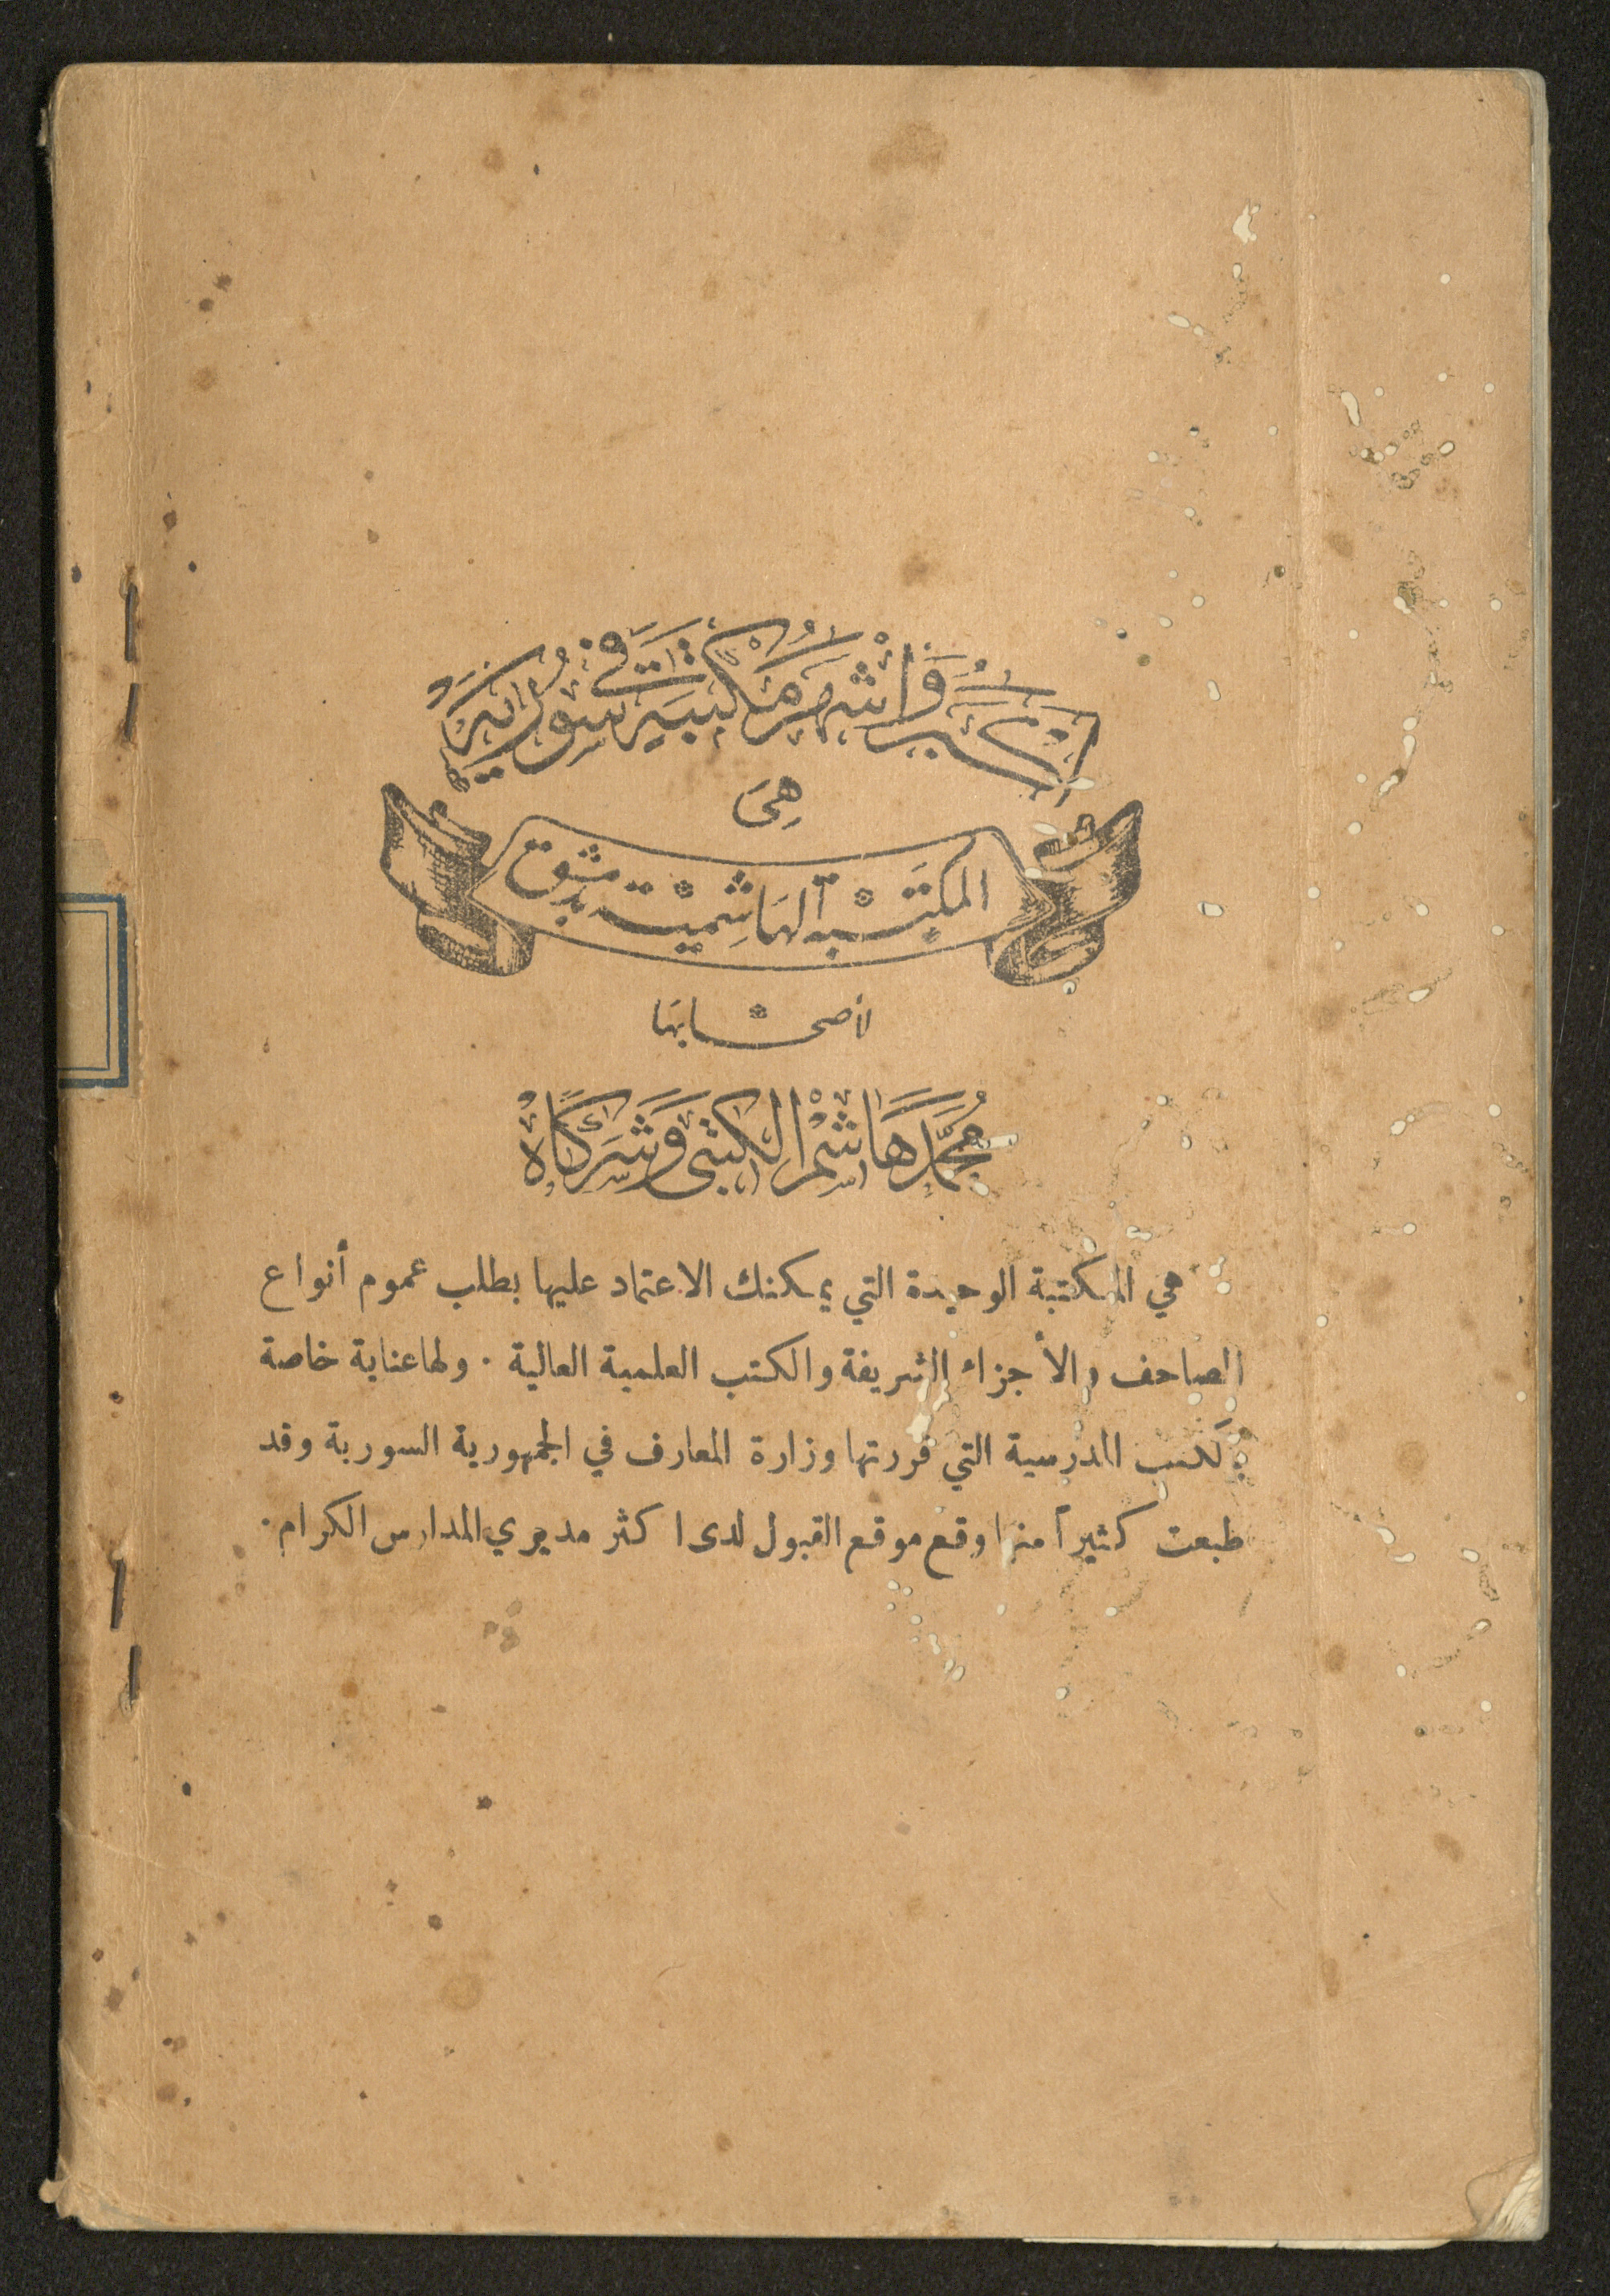 أكبر وأشهر مكتبة في سورية
هي
المكتبة الهاشمية بدمشق
لأصحابها
محمد هاشم الكتبي وشركاه
هي المكتبة الوحيدة التي يمكنك الاعتماد عليها بطلب عموم أنواع
المصاحف والأجزاء الشريفة والكتب العلمية العالية . ولها عناية خاصة
بالكتب المدرسية التي قررتها وزارة المعارف في الجمهورية السورية وقد
طبعت كثيراً منها وقع موقع القبول لدى اكثر مديري المدارس الكرام .